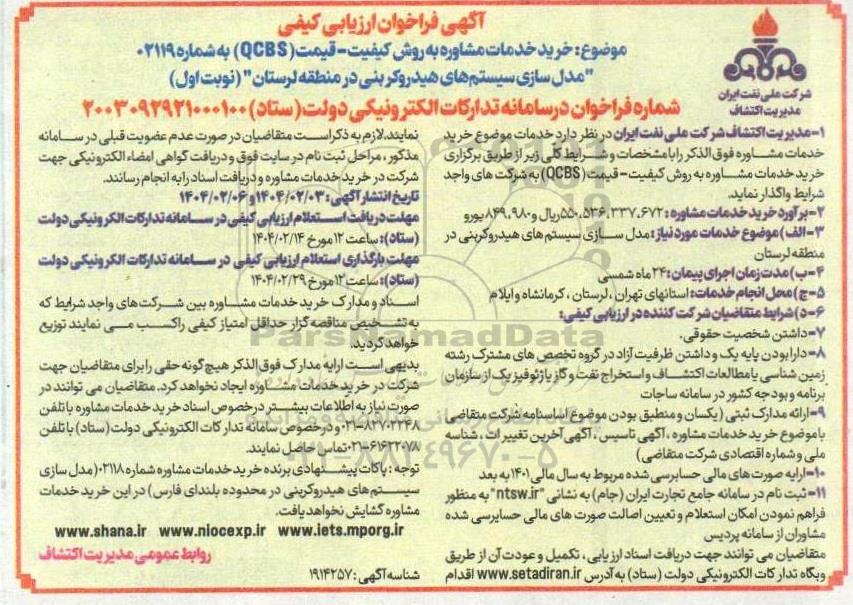 آگهی فراخوان ارزیابی کیفی
موضوع: خرید خدمات مشاوره به روش کیفیت - قیمت (QCBS) به شماره ۰۲۱۱۹
"مدل سازی سیستم‌های هیدروکربنی در منطقه لرستان" (نوبت اول)
شماره فراخوان در سامانه تدارکات الکترونیکی دولت (ستاد) ۲۰۰۳۰۹۲۹۲۱۰۰۰۱۰۰
شرکت ملی نفت ایران
مدیریت اکتشاف
۱- مدیریت اکتشاف شرکت ملی نفت ایران در نظر دارد خدمات موضوع خرید
خدمات مشاوره فوق الذکر را با مشخصات و شرایط کلی زیر از طریق برگزاری
خرید خدمات مشاوره به روش کیفیت - قیمت (QCBS) به شرکت های واجد
شرایط واگذار نماید.
۲- برآورد خرید خدمات مشاوره: ۵۵۰،۵۳۶،۳۳۷،۶۷۲ ریال و ۸۴۹،۹۸۰ یورو
۳- الف) موضوع خدمات مورد نیاز: مدل سازی سیستم های هیدروکربنی در
منطقه لرستان
۴- ب) مدت زمان اجرای پیمان: ۲۴ ماه شمسی
۵- ج) محل انجام خدمات: استانهای تهران، لرستان، کرمانشاه و ایلام
۶- د) شرایط متقاضیان شرکت کننده در ارزیابی کیفی:
۷- داشتن شخصیت حقوقی.
۸- دارا بودن پایه یک و داشتن ظرفیت آزاد در گروه تخصص های مشترک رشته
زمین شناسی یا مطالعات اکتشاف و استخراج نفت و گاز یا ژئوفیزیک از سازمان
برنامه و بودجه کشور در سامانه ساجات
۹- ارائه مدارک ثبتی (یکسان و منطبق بودن موضوع اساسنامه شرکت متقاضی
با موضوع خرید خدمات مشاوره، آگهی تاسیس، آگهی آخرین تغییرات، شناسه
ملی و شماره اقتصادی شرکت متقاضی)
۱۰- ارایه صورت های مالی حسابرسی شده مربوط به سال مالی ۱۴۰۱ به بعد
۱۱- ثبت نام در سامانه جامع تجارت ایران (جام) به نشانی "ntsw.ir" به منظور
فراهم نمودن امکان استعلام و تعیین اصالت صورت های مالی حسابرسی شده
مشاوران از سامانه پردیس
متقاضیان می توانند جهت دریافت اسناد ارزیابی، تکمیل و عودت آن از طریق
وبگاه تدارکات الکترونیکی دولت (ستاد) به آدرس www.setadiran.ir اقدام
نمایند. لازم به ذکر است متقاضیان در صورت عدم عضویت قبلی در سامانه
مذکور، مراحل ثبت نام در سایت فوق و دریافت گواهی امضاء الکترونیکی جهت
شرکت در خرید خدمات مشاوره و دریافت اسناد را به انجام رسانند.
تاریخ انتشار آگهی: ۱۴۰۴/۰۲/۰۳ و ۱۴۰۴/۰۲/۰۶
مهلت دریافت استعلام ارزیابی کیفی در سامانه تدارکات الکترونیکی دولت
(ستاد): ساعت ۱۲ مورخ ۱۴۰۴/۰۲/۱۴
مهلت بارگذاری استعلام ارزیابی کیفی در سامانه تدارکات الکترونیکی دولت
(ستاد): ساعت ۱۲ مورخ ۱۴۰۴/۰۲/۲۹
اسناد و مدارک خرید خدمات مشاوره بین شرکت های واجد شرایط که
به تشخیص مناقصه گزار حداقل امتیاز کیفی را کسب می نمایند توزیع
خواهد گردید.
بدیهی است ارایه مدارک فوق الذکر هیچ گونه حقی را برای متقاضیان جهت
شرکت در خرید خدمات مشاوره ایجاد نخواهد کرد. متقاضیان می توانند در
صورت نیاز به اطلاعات بیشتر درخصوص اسناد خرید خدمات مشاوره با تلفن
۰۲۱-۸۲۷۰۲۲۴۸ و درخصوص سامانه تدارکات الکترونیکی دولت (ستاد) با تلفن
۰۲۱-۶۱۶۲۲۰۷۸ تماس حاصل نمایند.
توجه: پاکات پیشنهادی برنده خرید خدمات مشاوره شماره ۰۲۱۱۸ (مدل سازی
سیستم های هیدروکربنی در محدوده بلندای فارس) در این خرید خدمات
مشاوره گشایش نخواهد یافت.
www.shana.ir www.niocexp.ir www.iets.mporg.ir
روابط عمومی مدیریت اکتشاف
شناسه آگهی: ۱۹۱۴۲۵۷
ParsNamadData
۰۲۱-۸۸۳۴۹۶۷۰-۵